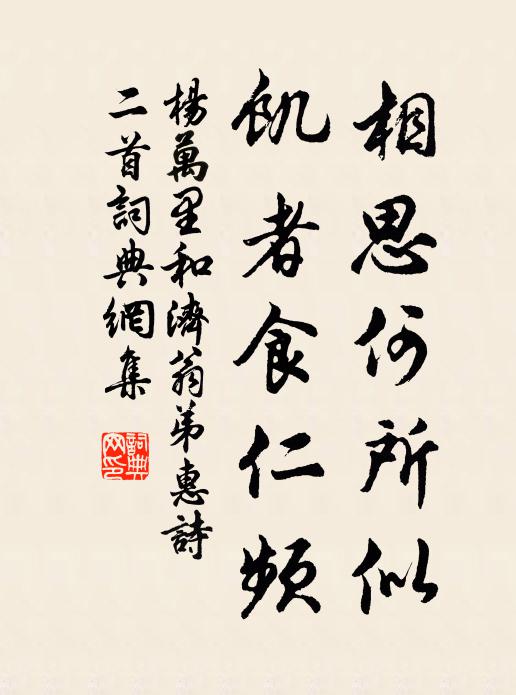 相思何所似
飢者食仁頻
楊萬里和濟翁弟惠詩
二首詞典網集
詞典網印